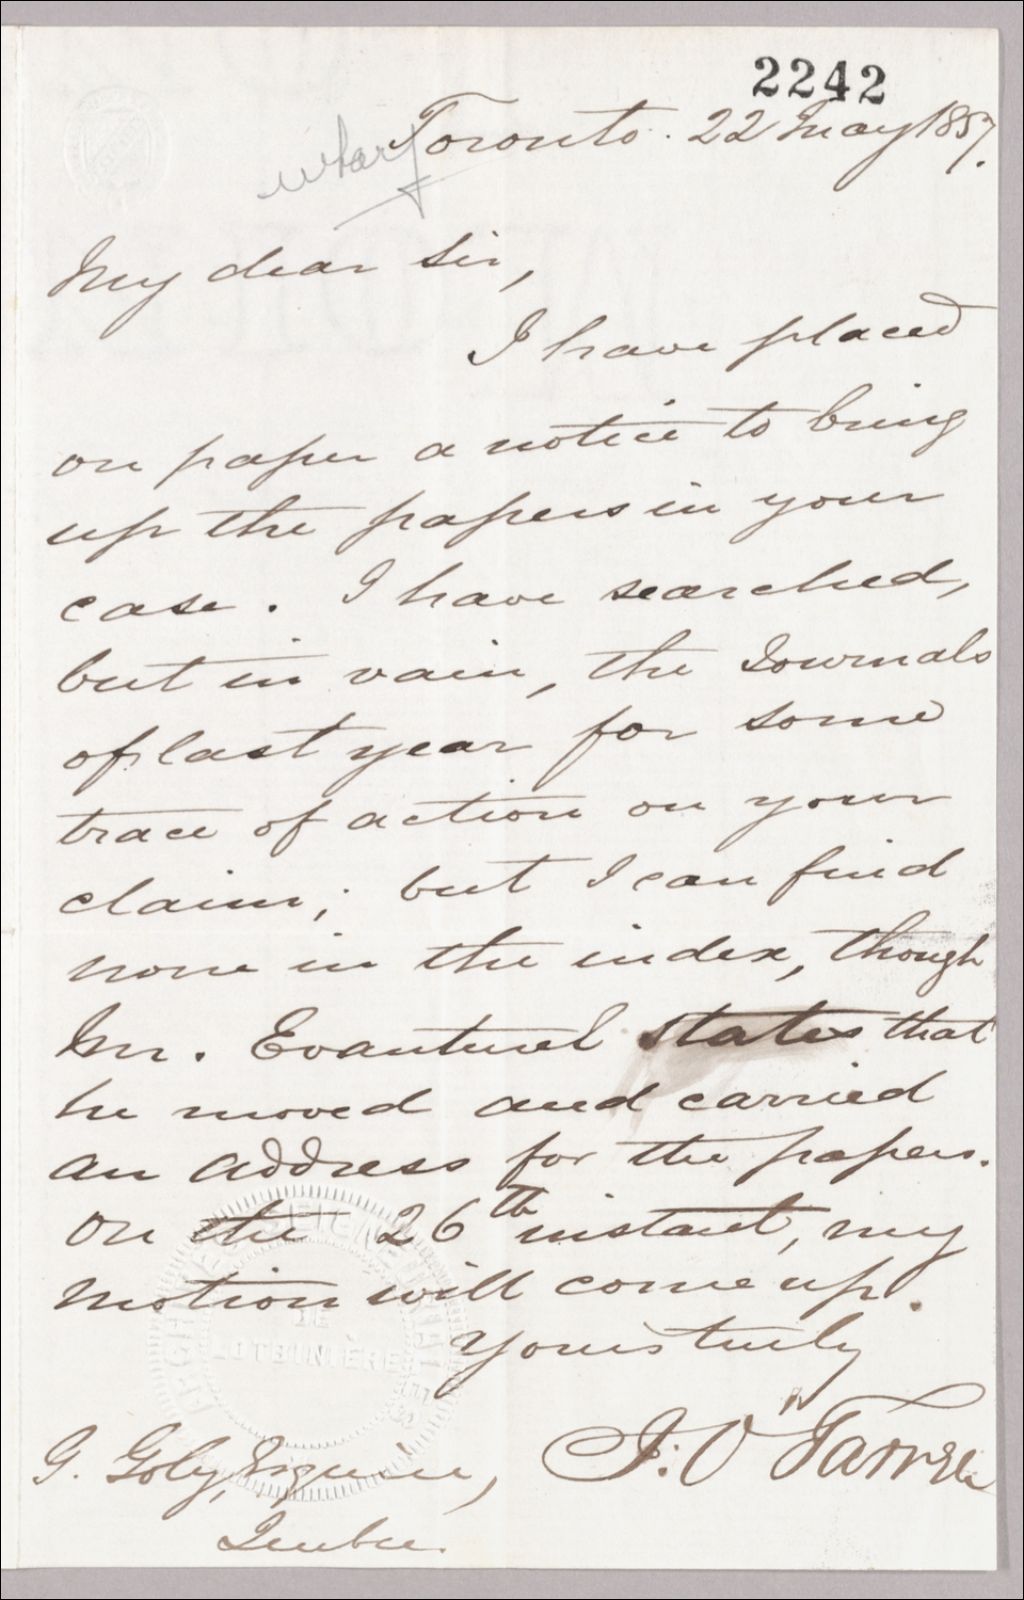 2242
Toronto. 22 May 1857.
wharf
My dear Sir,
I have placed
on paper a notice to bring
up the papers in your
case. I have searched,
but in vain, the Journals
of last year for some
trace of action on your
claim; but I can find
none in the index, though
Mr. Evanturel states that
he moved and carried
an address for the papers.
On the 26th instant, my
motion will come up.
Yours truly
J. O'Farrell
G. Joly, Esquire,
Quebec.
SEIGNEURIALES
DE
LOTBINIÈRE